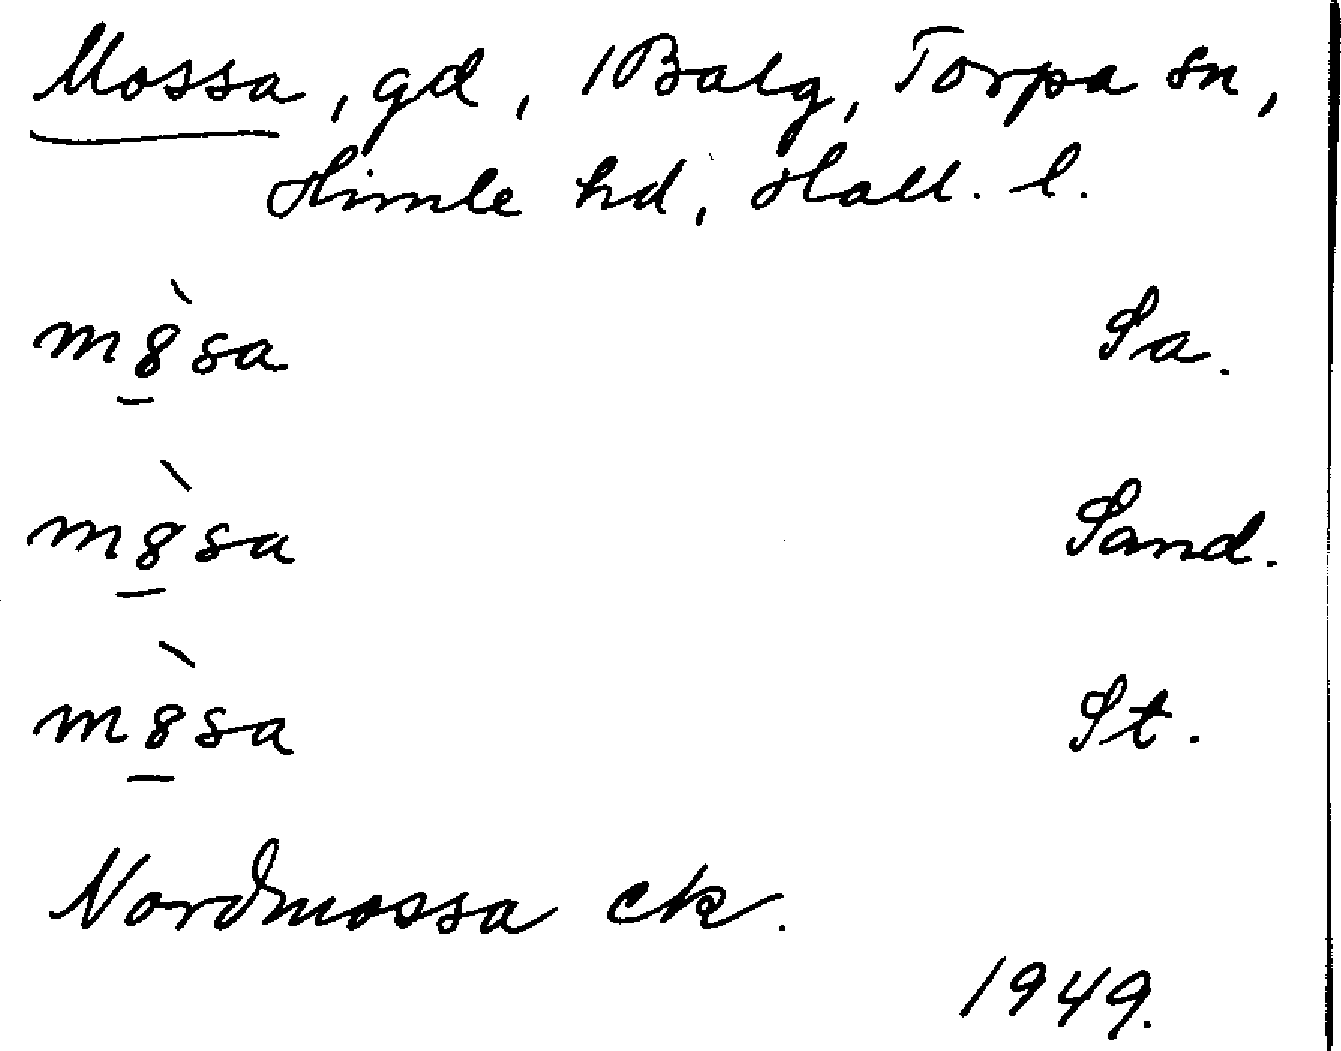 Mossa, gd, 1 Balg, Torpa sn,
Himle hd, Hall. l.
m8̠̀sa Sa.
m8̠̀sa Sand.
m8̠̀sa St.
Nordmossa ek.
1949.